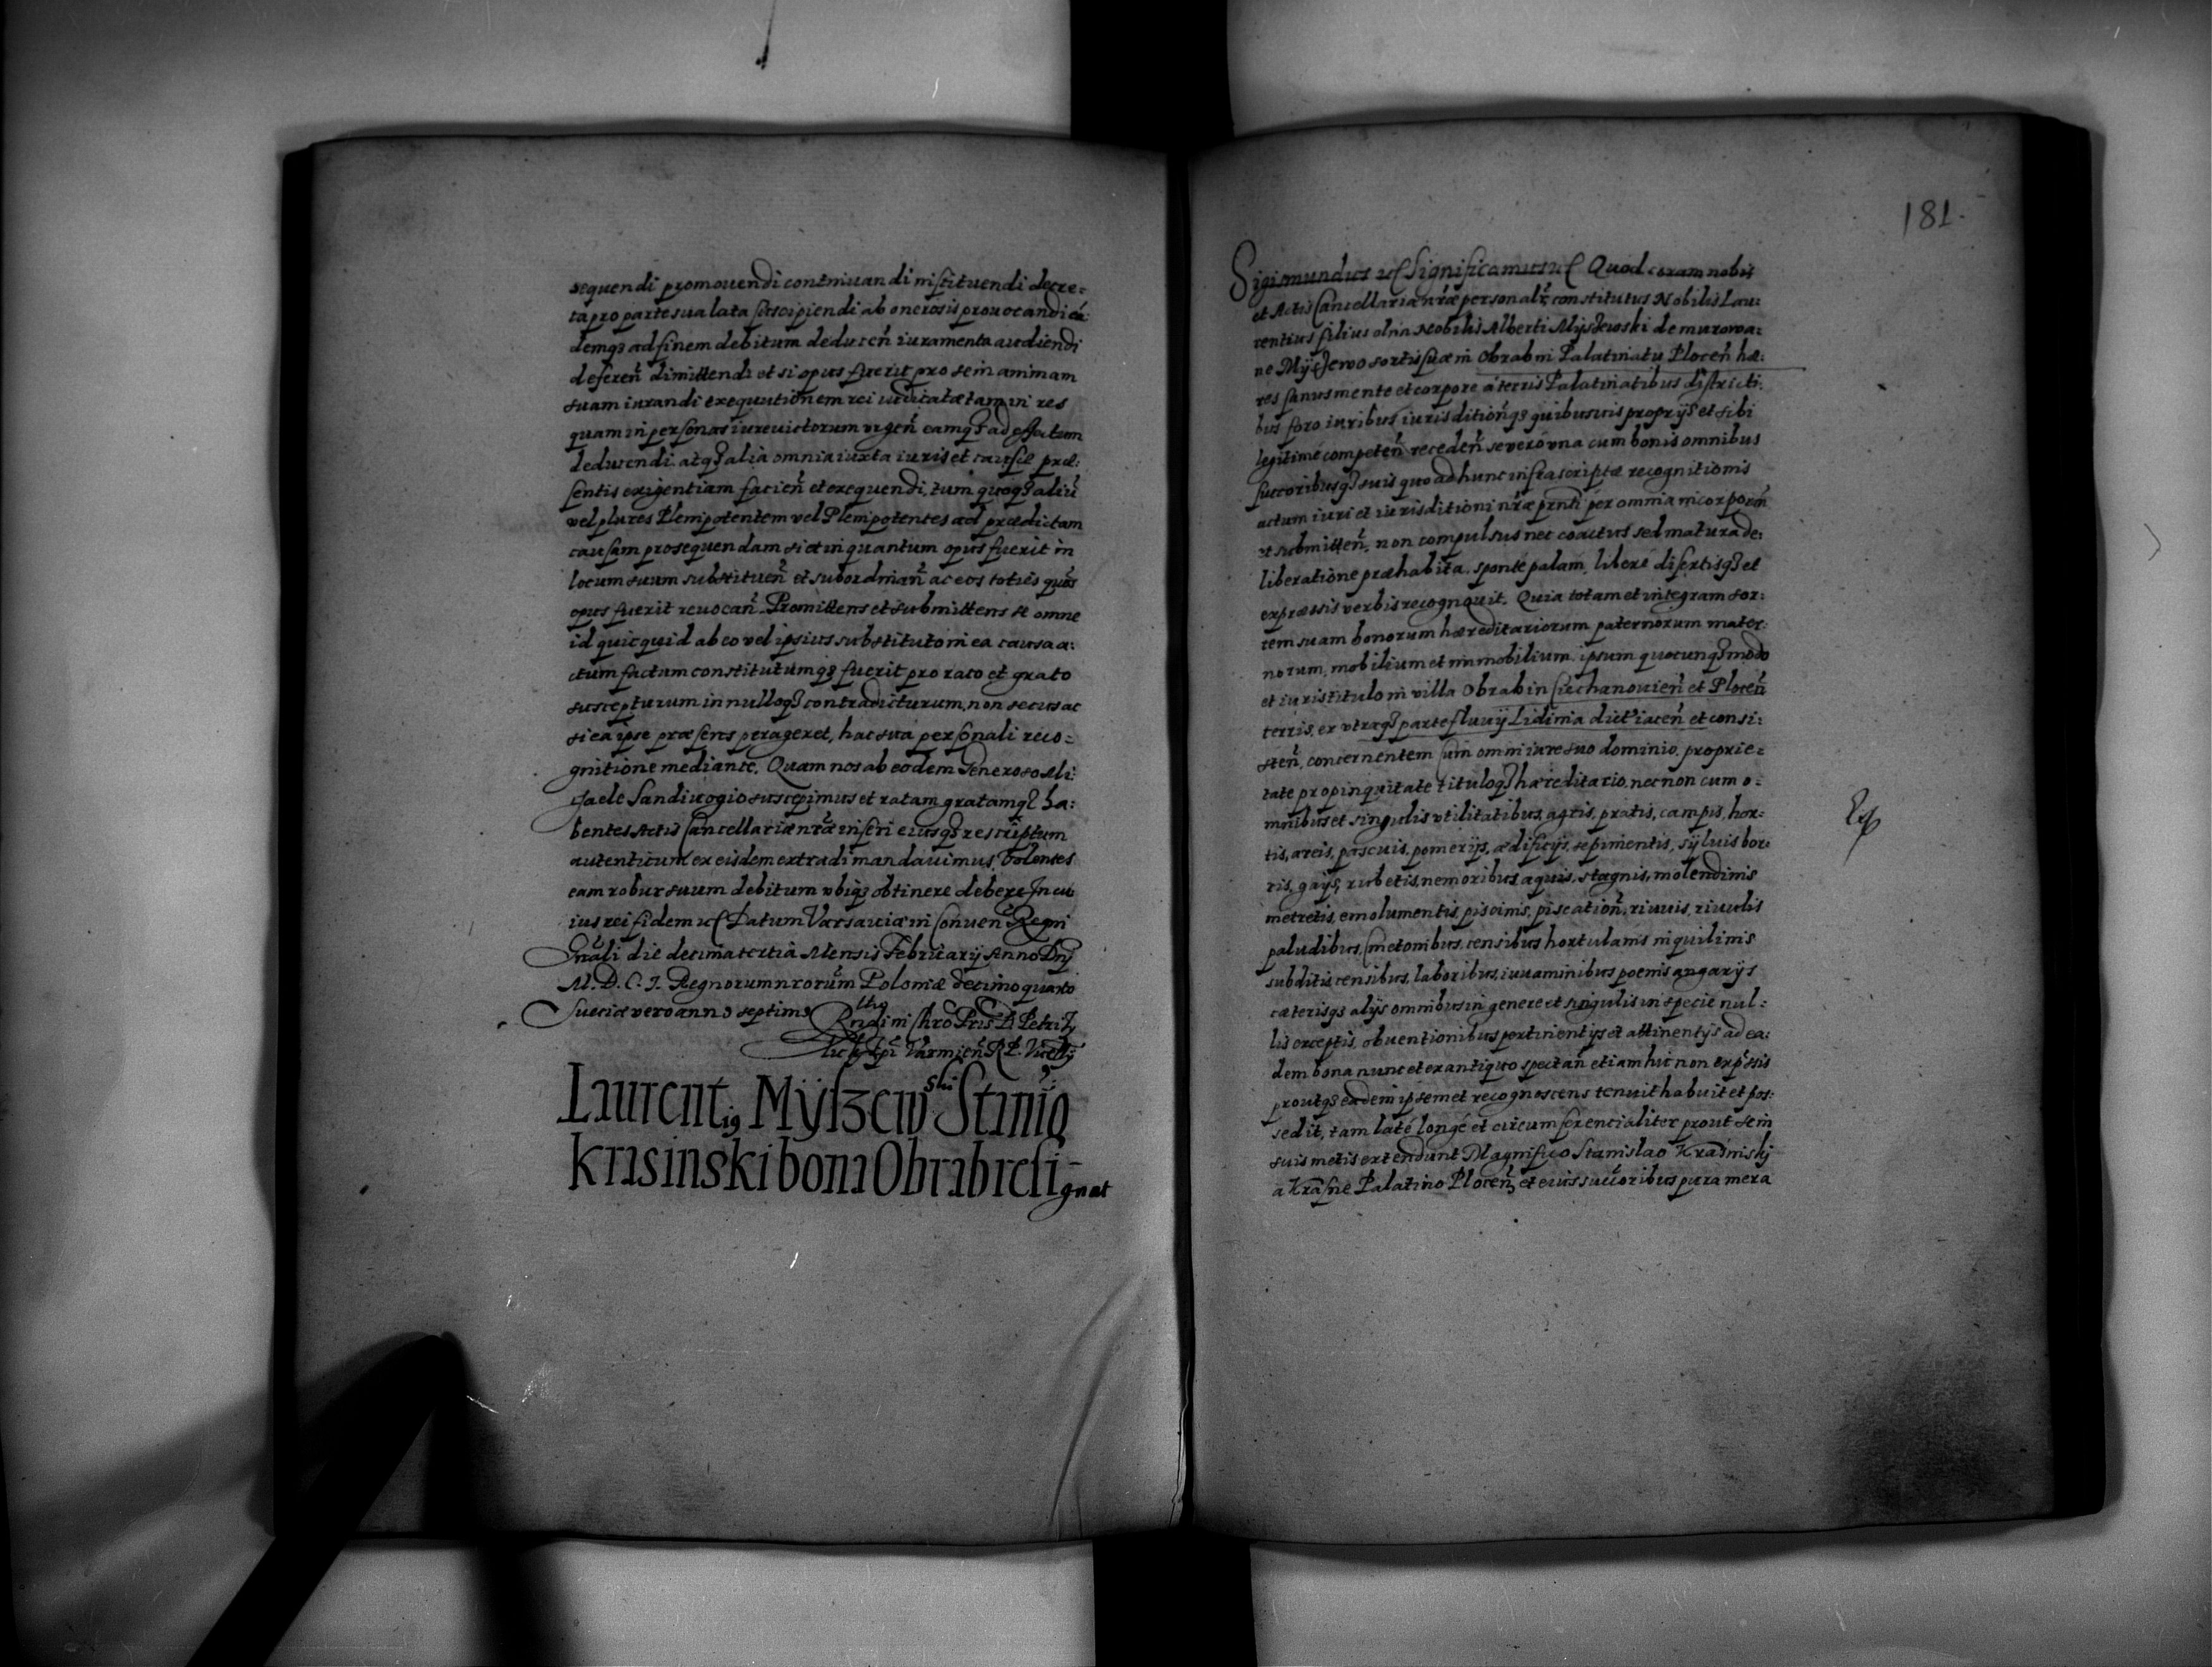 sequendi promouendi continuandi instituendi decre=
ta pro parte sua lata suscipiendi ab onerosis prouocandi eá
demqȝ ad finem debitum deducen̄ iuramenta audiendi
deferen̄ dimittendi et si opus fuerit pro se in animam
suam iurandi exequutionem rei iudicatæ tam in res
quam in personas iureuictorum urgen̄ eamqȝ ad effectum
deducendi atqȝ alia omnia iuxta iuris et causæ præ:
sentis exigentiam facien̄ et exequendi, tum quoqȝ aliū
vel plures Plenipotentem vel Plenipotentes ad prædictam
causam prosequendam si et in quantum opus fuerit in
locum suum substituen̄ et subordinan̄ ac eos toties quōs
opus fuerit reuocan̄. Promittens et submittens se omne
id quicquid ab eo vel ipsius substituto in ea causa a:
ctum factum constitutumqȝ fuerit pro rato et grato
suscepturum in nulloqȝ contradicturum, non secus ac
si ea ipse præsens perageret, hac sua personali reco=
gnitione mediante. Quam nos ab eodem Generoso Mi:
chaele Sandiuogio suscepimus et ratam gratamqȝ ha:
bentes Actis Cancellariæ nr̄æ inseri eiusqȝ rescriptum
autenticum ex eisdem extradi mandauimus, Volentes
eam robur suum debitum vbiqȝ obtinere debere. In cu
ius rei fidem ꝛc̄ Datum Varsauiæ in Conuen̄ Regni
Gn̄ali die decima tertia Mensis Februarij Anno Dn̄j
M. D. C. I. Regnorum nrorūm Poloniæ decimo quarto
Sueciæ vero anno septimo
Laurentiȝ Mÿſzewski Stanisl
Krasinski bona Obrab resi-
gnat
181.
Sigismundus ꝛc̄ Significamus ꝛc̄ Quod coram nobis
et Actis Cancellariæ nr̄æ personalr̄ constitutus Nobilis Lau:
rentius filius olim Nobilis Alberti Myszewski de murowa:
ne Myszewo sortis suæ in Obrab in Palatinatu Plocen̄ hæ:
res sanus mente et corpore á terris Palatinatibus districti:
bus foro iuribus iurisditionqȝ quibusuis proprijs et sibi
legitimé competen̄ receden̄ se vero vna cum bonis omnibus
succoribusqȝ suis quo ad hunc infrascriptæ recognitionis
actum iuri et iurisditioni nr̄æ prnti per omnia incorporan̄
et submitten̄, non compulsus nec coactus sed matura de:
liberatione præhabita, sponte palam, liberé disertisqȝ et
expressis verbis recognouit. Quia totam et integram sor:
tem suam bonorum hæreditariorum paternorum mater:
norum, mobilium et immobilium ipsum quocunqȝ modo
et iuris titulo in villa Obrab in Ciechanouien̄ et Plocen̄
terris, ex vtraqȝ parte fluuij Lidinia dict' iacen̄ et consi:
sten̄, concernentem Cum omni iure suo dominio, proprie=
tate propinquitate tituloqȝ hæreditario, nec non cum o=
mnibus et singulis vtilitatibus, agris, pratis, campis, hor=
tis, areis, pascuis, pomerijs, ædificijs, sepimentis, syluis bor:
ris, gajs, rubetis, nemoribus aquis, stagnis, molendinis
metretis, emolumentis, piscinis, piscation̄, riuuis, riuulis
paludibus, Cmetonibus, censibus hortulanis inquilinis
subditis censibus, laboribus, iuuaminibus poenis angarijs
cæterisqȝ alijs omnibus in genere et singulis in specie nul=
lis exceptis, obuentionibus pertinentijs et attinentijs ad ea:
dem bona nunc et ex antiquo spectan̄ etiam hic non expssis
proutqȝ eadem ipsemet recognoscens tenuit habuit et pos:
sedit, tam laté longé et circumferencialiter prout se in
suis metis extendunt Magnifico Stanislao Krasinskj
a Krasne Palatino Plocen̄, et eius succoribus pura mera